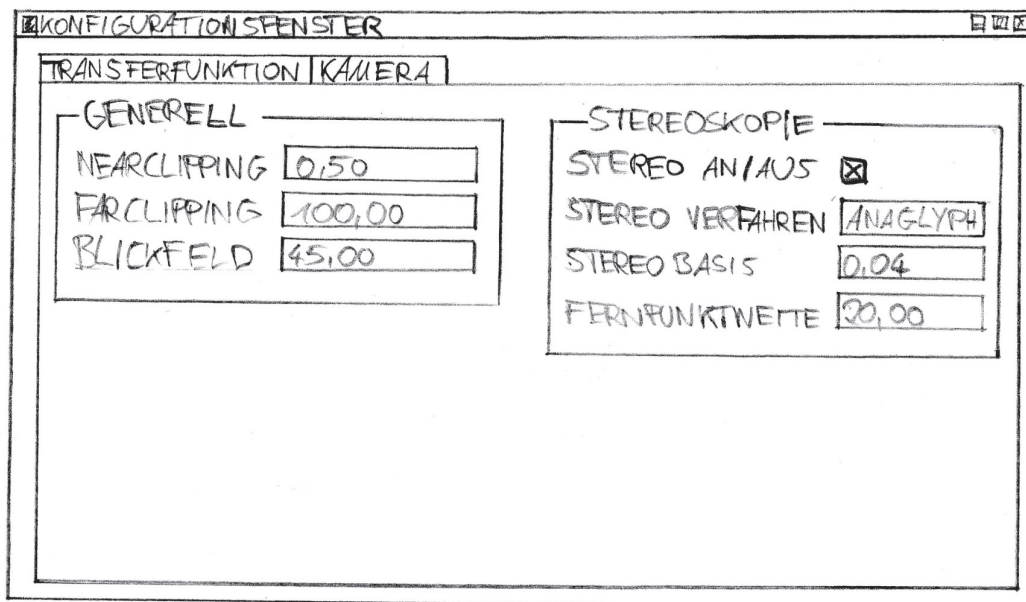 KONFIGURATIONSFENSTER
TRANSFERFUNKTION KAMERA
GENERELL
NEARCLIPPING 0,50
FARCLIPPING 100,00
BLICKFELD 45,00
STEREOSKOPIE
STEREO AN/AUS
STEREO VERFAHREN ANAGLYPH
STEREO BASIS 0.04
FERNPUNKTWEITE 20,00